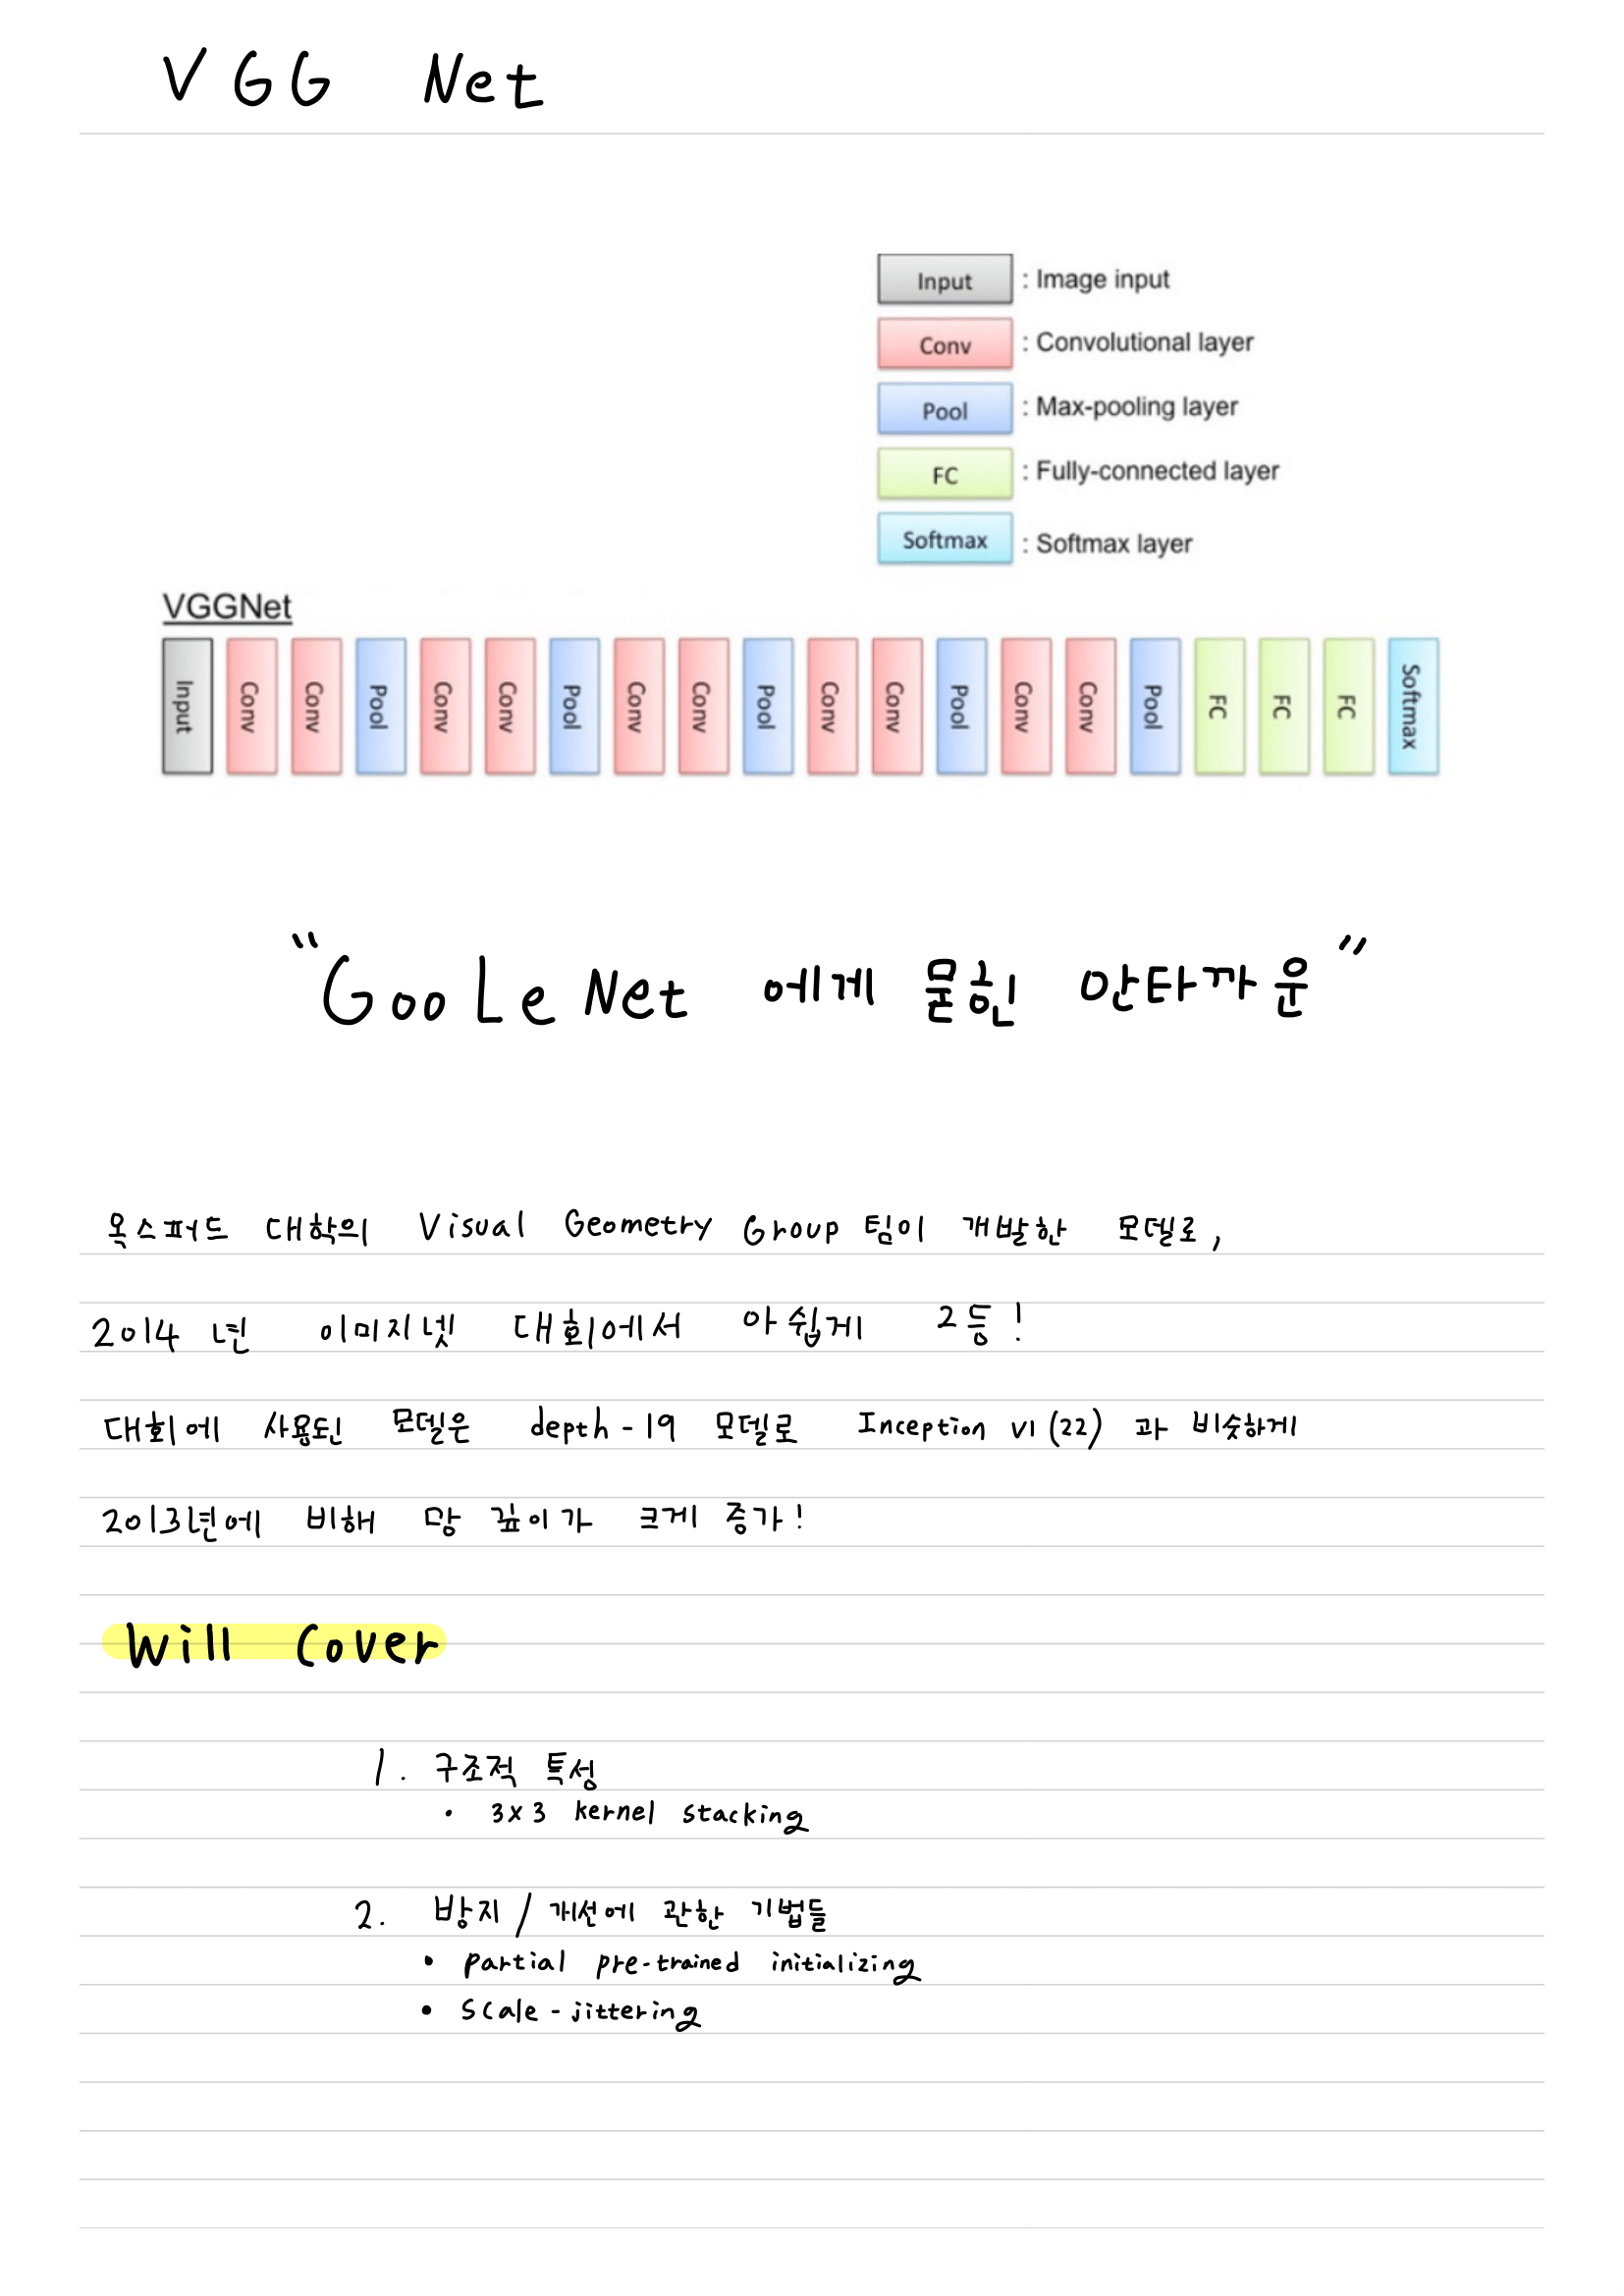 VGG Net
Input : Image input
Conv : Convolutional layer
Pool : Max-pooling layer
FC : Fully-connected layer
Softmax : Softmax layer
VGGNet
Input Conv Conv Pool Conv Conv Pool Conv Conv Pool Conv Conv Pool Conv Conv Pool FC FC FC Softmax
"GooLeNet 에게 묻힌 안타까운"
옥스퍼드 대학의 Visual Geometry Group 팀이 개발한 모델로,
2014 년 이미지넷 대회에서 아쉽게 2등!
대회에 사용된 모델은 depth-19 모델로 Inception v1 (22) 과 비슷하게
2013년에 비해 망 깊이가 크게 증가!
Will Cover
1. 구조적 특성
• 3x3 kernel stacking
2. 방지/개선에 관한 기법들
• partial pre-trained initializing
• scale-jittering